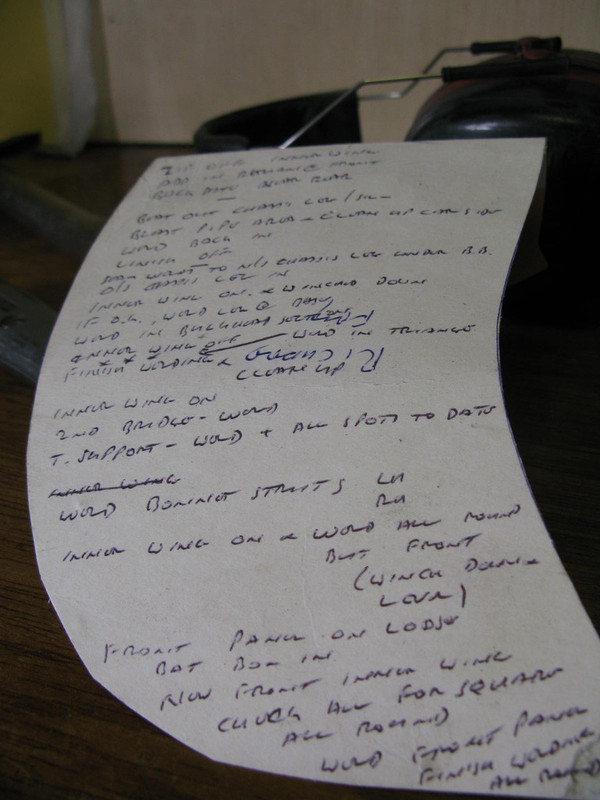 INNER WING
BLAST OUT CHASSIS LEG/
BLAST PIPE AREA - CLEAN UP CAR SIDE
WELD BACK IN
FINISH OFF
SEAM WELD TO N/S CHASSIS LEG UNDER B.B.
O/S CHASSIS LEG IN
INNER WING ON. & WINCHED DOWN
IF O.K., WELD LEG @ BASE
WELD IN BULKHEAD
INNER WING OFF WELD IN TRIANGLE
FINISH WELDING &
CLEAN UP
INNER WING ON
2ND BRIDGE - WELD
T. SUPPORT - WELD + ALL SPOTS TO DATE
INNER WING
WELD BONNET STRUTS LH
RH
INNER WING ON & WELD ALL ROUND
BUT FRONT
(WINCH DOWN &
LEVEL)
FRONT PANEL ON LOOSE
BAT BOX IN
FRONT INNER WING
CHECK ALL FOR SQUARE
ALL ROUND
WELD FRONT PANEL
FINISH WELDING
ALL ROUND